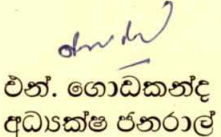 එන්. ගොඩකන්ද
අධ්‍යක්ෂ ජනරාල්